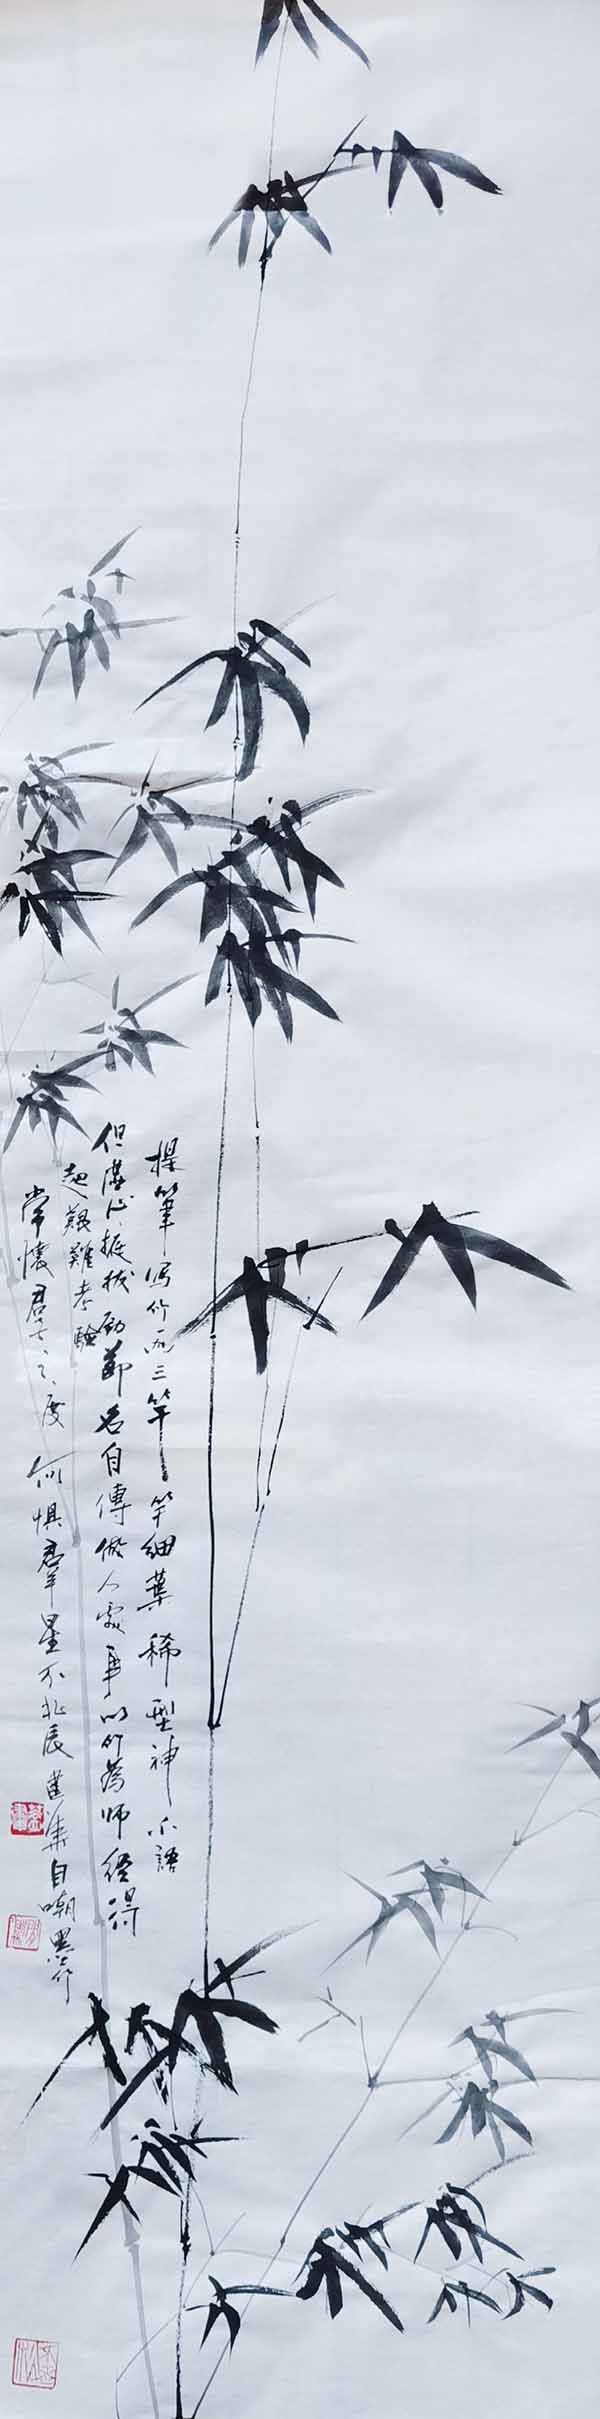 提筆写竹两三竿竿細葉稀型神不語
但虚心挺拔劲節名自傳做人處事以竹為師經得
起艱難考驗
常懷君士之度何惧羣星不北辰 華自嘲墨竹